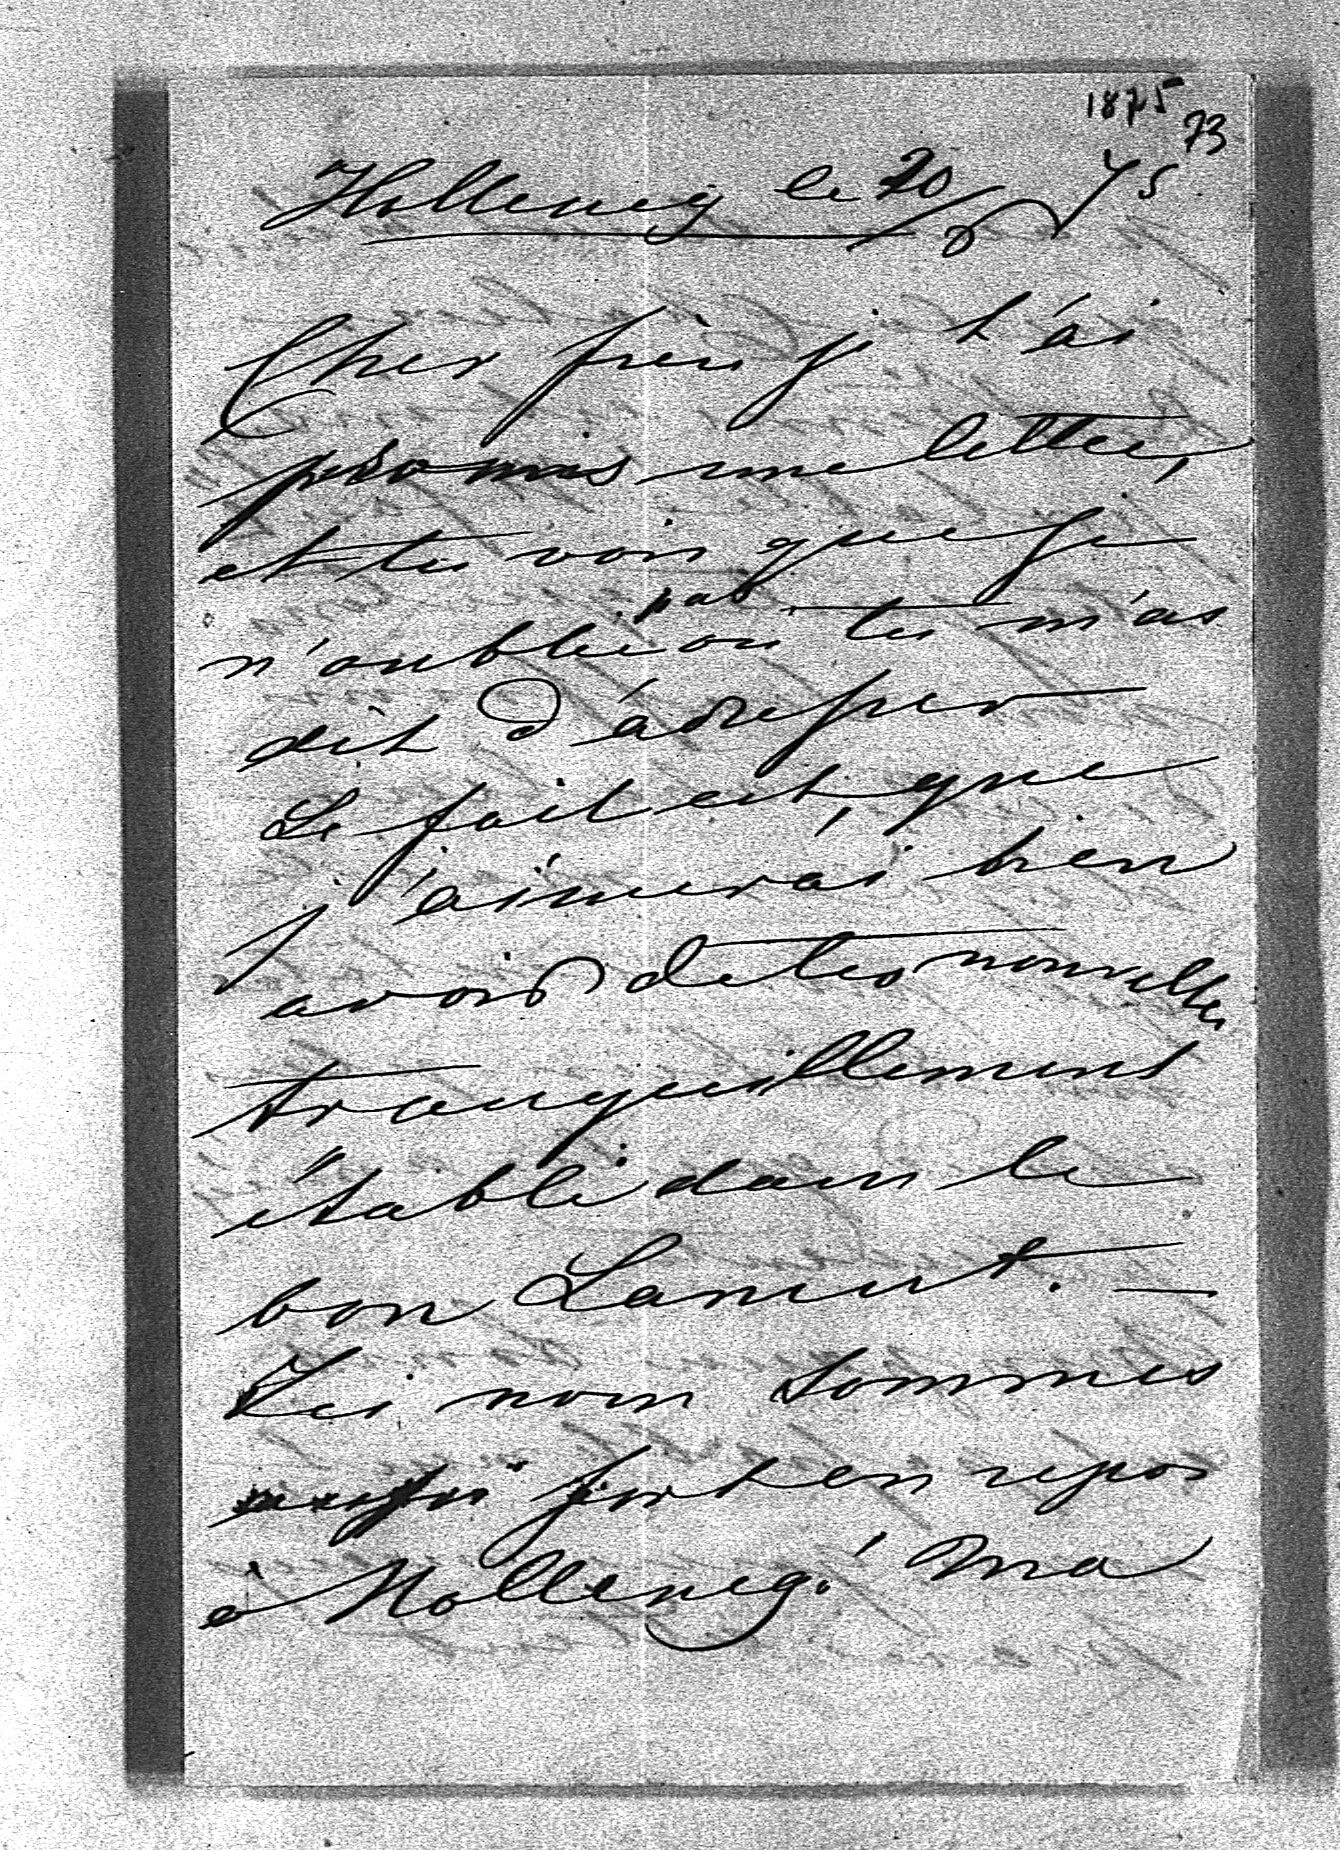 1875
73
Hollenegg le 20/8 75
Cher frère je t'ai
promis une lettre,
et tu vois que je
n'oublie pas où tu m'as
dit d'adresser
Le fait est, que
j'aimerai bien
avoir de tes nouvelles
tranquillement
établi dans le
bon Lancut. —
Ici nous sommes
fort en repos
à Hollenegg! Ma